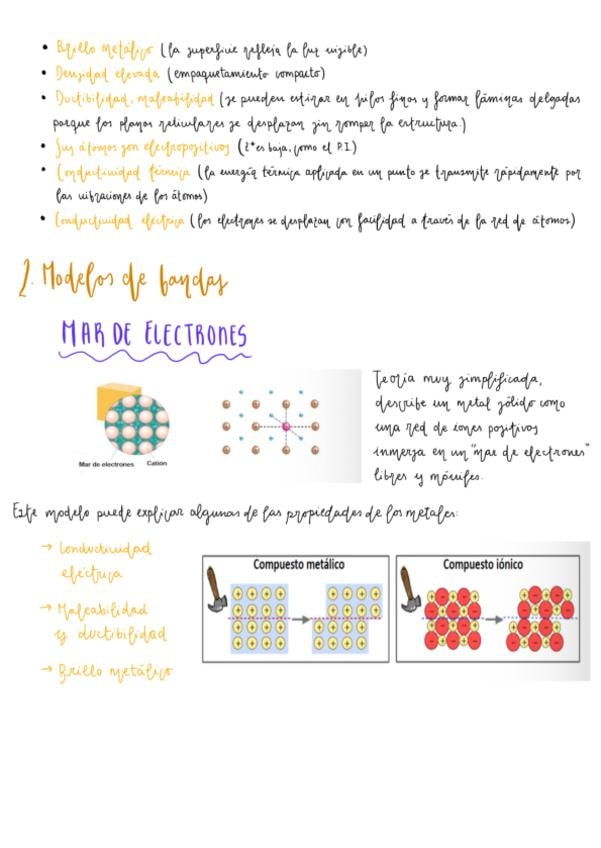 • Brillo metálico (la superficie refleja la luz visible)
• Densidad elevada (empaquetamiento compacto)
• Ductibilidad, maleabilidad (se pueden estirar en hilos finos y formar láminas delgadas
porque los planos reticulares se desplazan sin romper la estructura.)
• Sus átomos son electropositivos (Z* es baja, como el P.I.)
• Conductividad térmica (la energía térmica aplicada en un punto se transmite rápidamente por
las vibraciones de los átomos)
• Conductividad eléctrica (los electrones se desplazan con facilidad a través de la red de átomos)
2. Modelos de bandas
MAR DE ELECTRONES
Teoría muy simplificada,
describe un metal sólido como
una red de iones positivos
inmersa en un "mar de electrones"
libres y móviles.
Mar de electrones Catión
Este modelo puede explicar algunas de las propiedades de los metales:
→ Conductividad
eléctrica
→ Maleabilidad
y ductibilidad
→ Brillo metálico
Compuesto metálico
Compuesto iónico